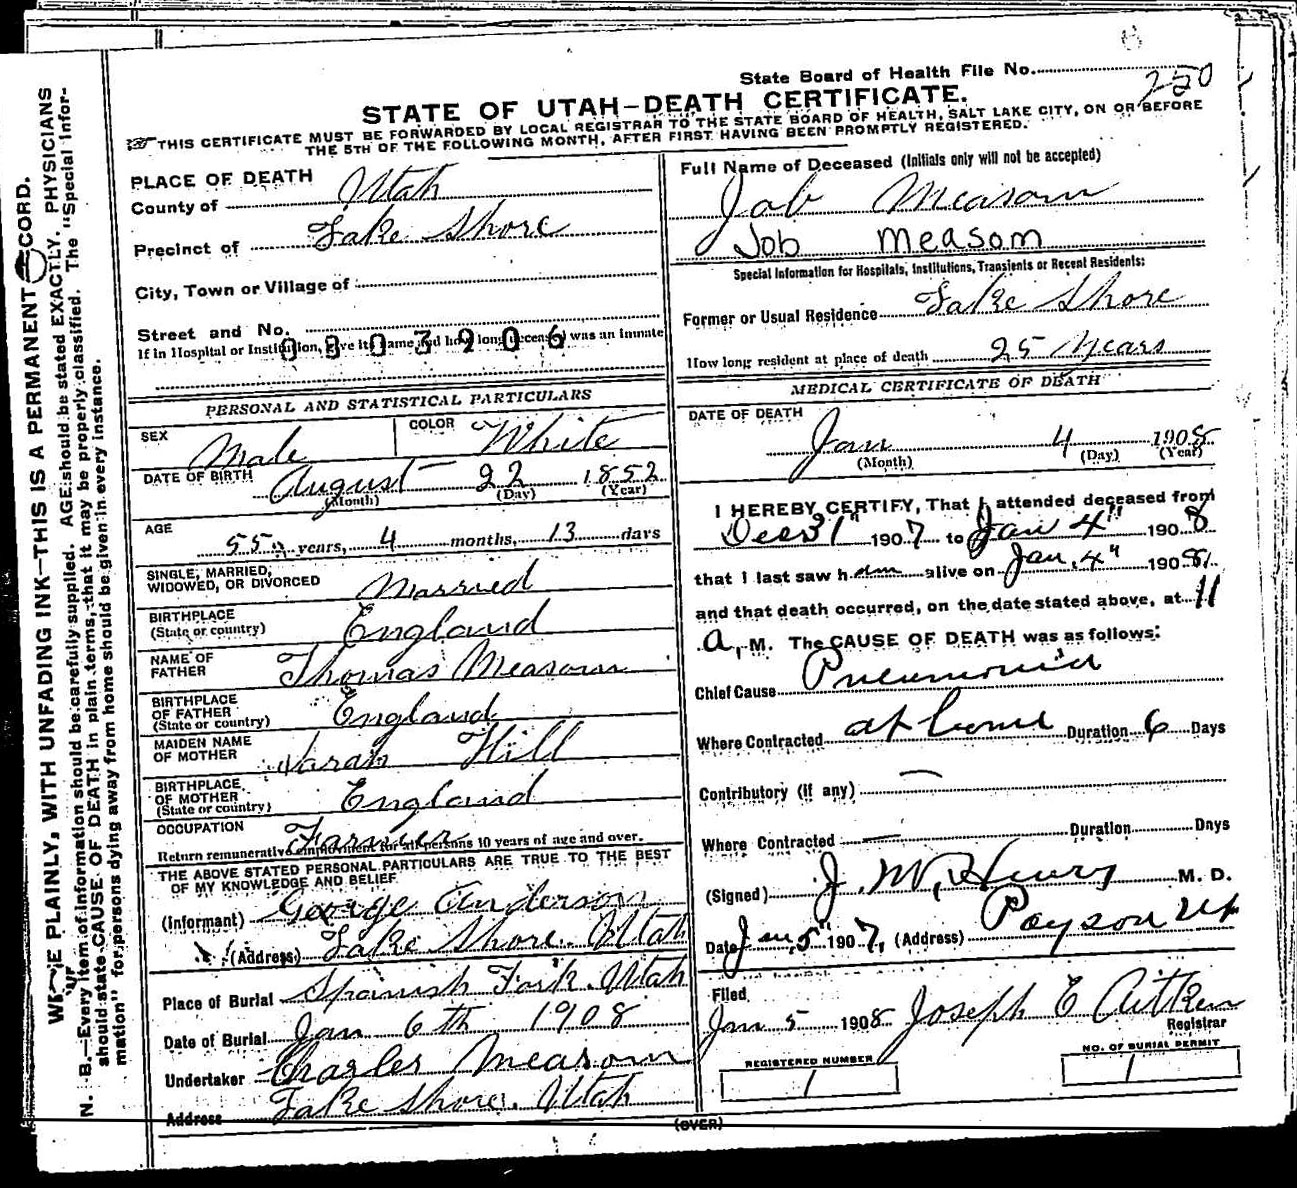 State Board of Health File No. 250
STATE OF UTAH—DEATH CERTIFICATE.
THIS CERTIFICATE MUST BE FORWARDED BY LOCAL REGISTRAR TO THE STATE BOARD OF HEALTH, SALT LAKE CITY, ON OR BEFORE
THE 5TH OF THE FOLLOWING MONTH, AFTER FIRST HAVING BEEN PROMPTLY REGISTERED.
PLACE OF DEATH
County of Utah
Precinct of Lake Shore
City, Town or Village of
Street and No.
If in Hospital or Institution, give its name and how long deceased was an inmate
0803206
PERSONAL AND STATISTICAL PARTICULARS
SEX Male COLOR White
DATE OF BIRTH August 22 1852
(Month) (Day) (Year)
AGE 55 years, 4 months, 13 days
SINGLE, MARRIED,
WIDOWED, OR DIVORCED Married
BIRTHPLACE
(State or country) England
NAME OF
FATHER Thomas Measom
BIRTHPLACE
OF FATHER
(State or country) England
MAIDEN NAME
OF MOTHER Sarah Hill
BIRTHPLACE
OF MOTHER
(State or country) England
OCCUPATION Farmer
Return remunerative employment for all persons 10 years of age and over.
THE ABOVE STATED PERSONAL PARTICULARS ARE TRUE TO THE BEST
OF MY KNOWLEDGE AND BELIEF
(Informant) George Anderson
(Address) Lake Shore. Utah
Place of Burial Spanish Fork. Utah
Date of Burial Jan 6th 1908
Undertaker Charles Measom
Address Lake Shore. Utah
Full Name of Deceased (Initials only will not be accepted)
Job Measom
Job Measom
Special Information for Hospitals, Institutions, Transients or Recent Residents:
Former or Usual Residence Lake Shore
How long resident at place of death 25 Years
MEDICAL CERTIFICATE OF DEATH
DATE OF DEATH
Jan 4 1908
(Month) (Day) (Year)
I HEREBY CERTIFY, That I attended deceased from
Dec 31" 1907 to Jan 4" 1908
that I last saw him alive on Jan. 4" 1908
and that death occurred, on the date stated above, at 11
a, M. The CAUSE OF DEATH was as follows:
Chief Cause Pneumonia
Where Contracted at home Duration 6 Days
Contributory (if any) —
Where Contracted — Duration Days
(Signed) J. W. Henry M. D.
Date Jan 5" 1907, (Address) Payson Ut
Filed
Jan 5 1908 Joseph E Aitken
Registrar
REGISTERED NUMBER
1
NO. OF BURIAL PERMIT
1
(OVER)
WRITE PLAINLY, WITH UNFADING INK—THIS IS A PERMANENT RECORD.
N. B.—Every item of information should be carefully supplied. AGE should be stated EXACTLY. PHYSICIANS
should state CAUSE OF DEATH in plain terms, that it may be properly classified. The "Special Infor-
mation" for persons dying away from home should be given in every instance.